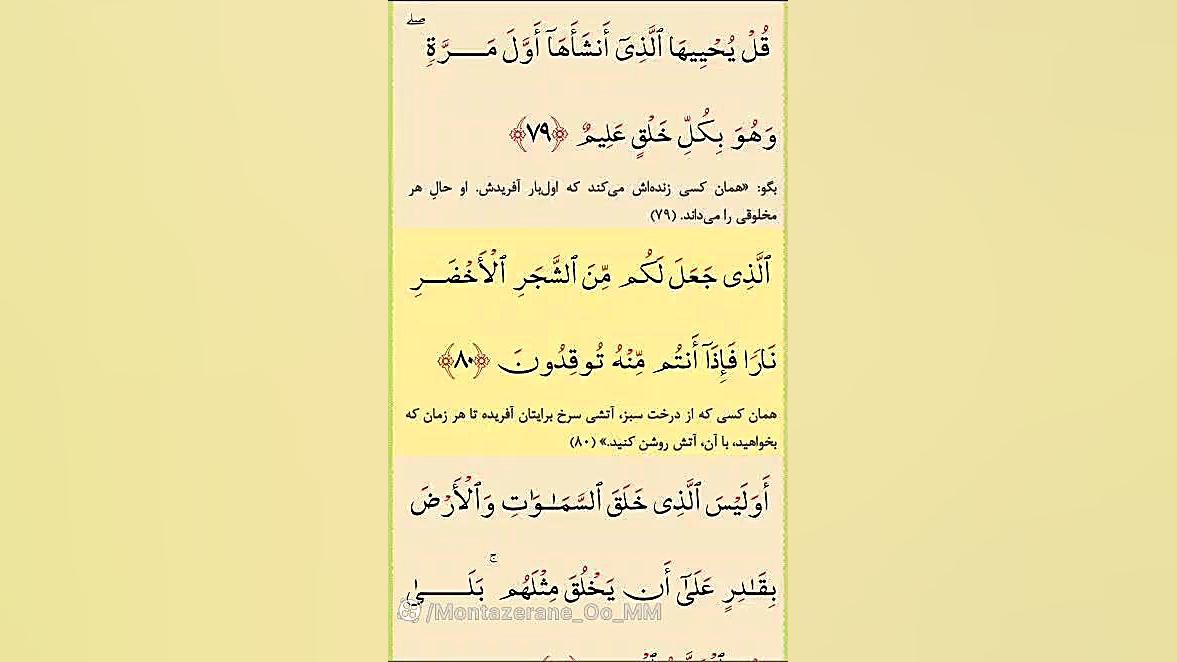 قُلْ يُحْيِيهَا ٱلَّذِىٓ أَنشَأَهَآ أَوَّلَ مَــرَّةٍۖ
وَهُوَ بِكُلِّ خَلْقٍ عَلِيمٌ ﴿٧٩﴾
بگو: «همان کسی زنده‌اش می‌کند که اول‌بار آفریدش. او حالِ هر
مخلوقی را می‌داند. (۷۹)
ٱلَّذِى جَعَلَ لَكُم مِّنَ ٱلشَّجَرِ ٱلْأَخْضَــرِ
نَارًا فَإِذَآ أَنتُم مِّنْهُ تُوقِدُونَ ﴿٨٠﴾
همان کسی که از درخت سبز، آتشی سرخ برایتان آفریده تا هر زمان که
بخواهید، با آن، آتش روشن کنید.» (۸۰)
أَوَلَيْسَ ٱلَّذِى خَلَقَ ٱلسَّمَـٰوَٰتِ وَٱلْأَرْضَ
بِقَـٰدِرٍ عَلَىٰٓ أَن يَخْلُقَ مِثْلَهُم ۚ بَلَــىٰ
/Montazerane_Oo_MM